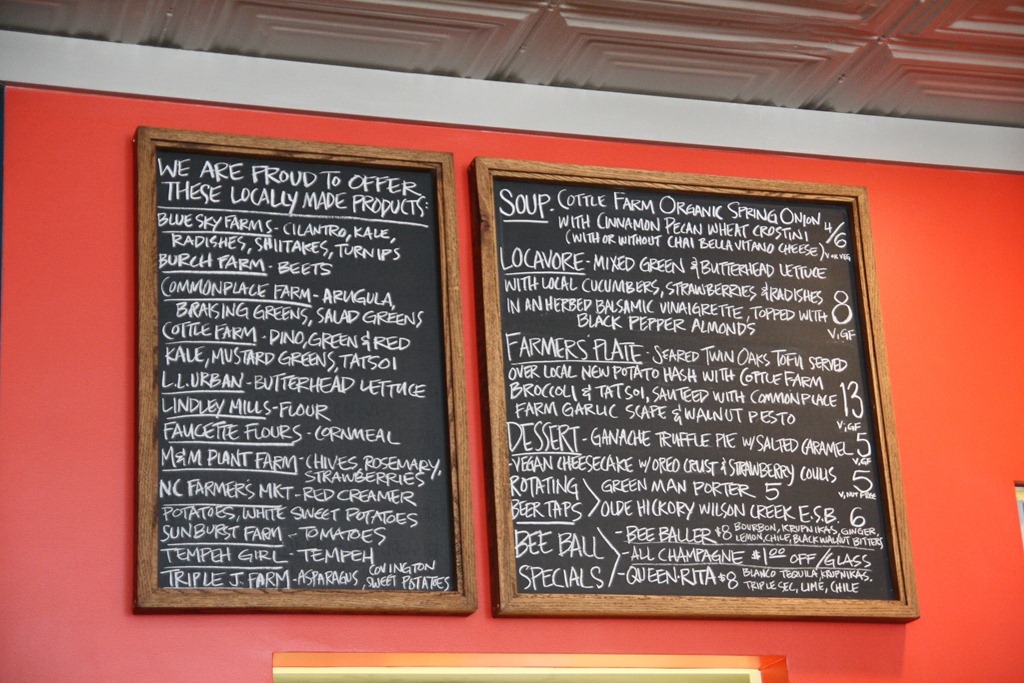 WE ARE PROUD TO OFFER
THESE LOCALLY MADE PRODUCTS:
BLUE SKY FARMS - CILANTRO, KALE,
RADISHES, SHIITAKES, TURNIPS
BURCH FARM - BEETS
COMMONPLACE FARM - ARUGULA,
BRAISING GREENS, SALAD GREENS
COTTLE FARM - DINO, GREEN & RED
KALE, MUSTARD GREENS, TATSOI
L.L. URBAN - BUTTERHEAD LETTUCE
LINDLEY MILLS - FLOUR
FAUCETTE FLOURS - CORNMEAL
M&M PLANT FARM - CHIVES, ROSEMARY,
STRAWBERRIES
NC FARMER'S MKT - RED CREAMER
POTATOES, WHITE SWEET POTATOES
SUNBURST FARM - TOMATOES
TEMPEH GIRL - TEMPEH
TRIPLE J. FARM - ASPARAGUS, COVINGTON
SWEET POTATOES
SOUP. COTTLE FARM ORGANIC SPRING ONION
WITH CINNAMON PECAN WHEAT CROSTINI 4/6
(WITH OR WITHOUT CHAI BELLAVITANO CHEESE) V OR VEG
LOCAVORE - MIXED GREEN & BUTTERHEAD LETTUCE
WITH LOCAL CUCUMBERS, STRAWBERRIES & RADISHES
IN AN HERBED BALSAMIC VINAIGRETTE, TOPPED WITH 8
BLACK PEPPER ALMONDS V, GF
FARMERS' PLATE - SEARED TWIN OAKS TOFU SERVED
OVER LOCAL NEW POTATO HASH WITH COTTLE FARM
BROCCOLI & TATSOI, SAUTEED WITH COMMONPLACE 13
FARM GARLIC SCAPE & WALNUT PESTO V, GF
DESSERT - GANACHE TRUFFLE PIE W/ SALTED CARAMEL 5
V, GF
- VEGAN CHEESECAKE W/ OREO CRUST & STRAWBERRY COULIS 5
V, NUT FREE
ROTATING BEER TAPS > GREEN MAN PORTER 5
OLDE HICKORY WILSON CREEK E.S.B. 6
BEE BALL SPECIALS > - BEE BALLER $8 BOURBON, KRUPNIKAS, GINGER,
LEMON, CHILE, BLACK WALNUT BITTERS
- ALL CHAMPAGNE $1.00 OFF/GLASS
- QUEEN-RITA $8 BLANCO TEQUILA, KRUPNIKAS,
TRIPLE SEC, LIME, CHILE